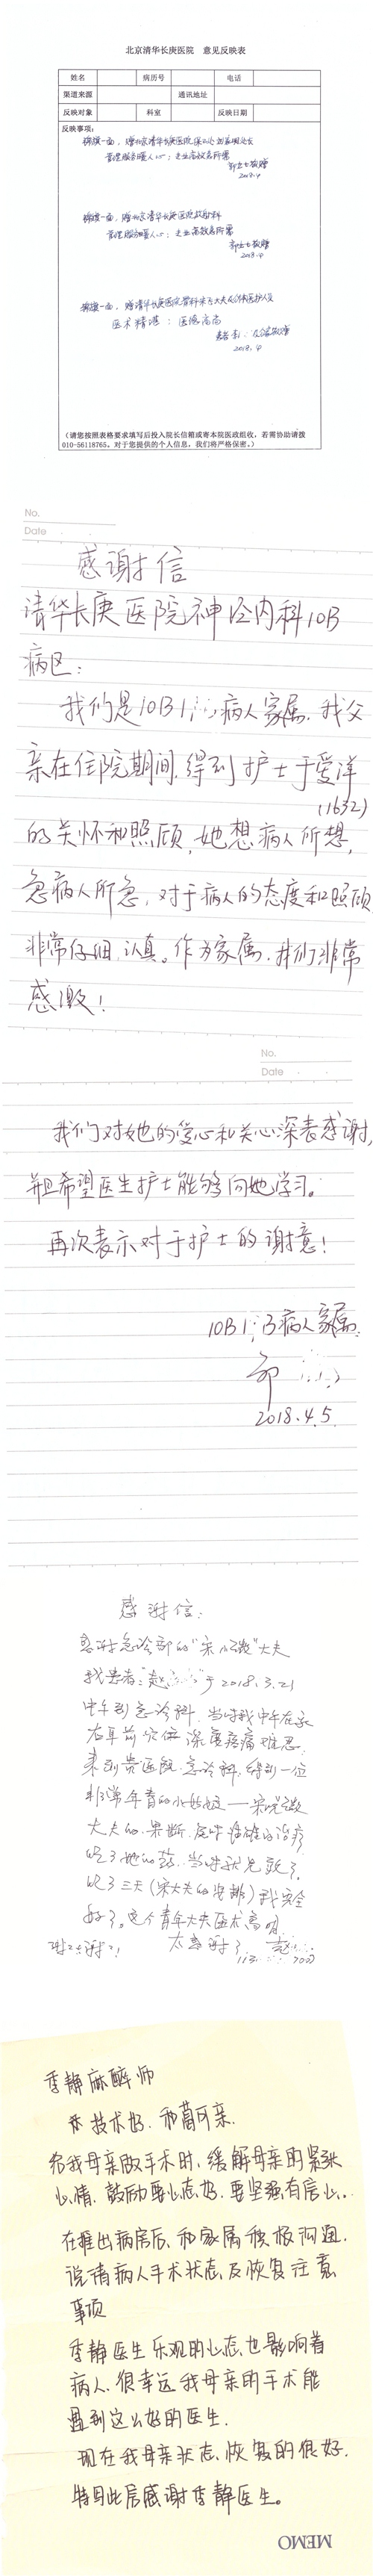 北京清华长庚医院 意见反映表
姓名 病历号 电话
渠道来源 通讯地址
反映对象 科室 反映日期
反映事项：
锦旗一面，赠北京清华长庚医院
管理服务暖人心；走业高效急所需
敬赠
2018.4
锦旗一面，赠北京清华长庚医院
管理服务暖人心；走业高效急所需
敬赠
2018.4
锦旗一面，赠清华长庚医院骨科 大夫及 医护人员
医术精湛：医德高尚
患者 敬赠
2018.4
（请您按照表格要求填写后投入院长信箱或寄本院医政组收，若需协助请拨
010-56118765。对于您提供的个人信息，我们将严格保密。）
No.
Date
感谢信
清华长庚医院神经内科10B
病区：
我们是10B1 病人家属，我父
亲在住院期间，得到护士于爱洋
(1632)
的关怀和照顾，她想病人所想，
急病人所急，对于病人的态度和照顾
非常仔细，认真。作为家属，我们非常
感激！
No.
Date
我们对她的爱心和关心深表感谢，
并且希望医生护士能够向她学习。
再次表示对于护士的谢意！
10B1 病人家属
2018.4.5
感谢信：
感谢急诊部的“宋 ”大夫
我患者：“赵 ”于2018.3.21
中午到急诊科，当时我中午在家
右耳前 深度疼痛难忍，
来到贵医院急诊科，得到一位
非常年青的小姑娘—宋
大夫的果断、 准确的治疗
吃了她的药，当时就见效了，
吃了三天（宋大夫的安排）我完全
好了。这个青年大夫医术高明，
谢谢！ 太感谢了 赵
季静麻醉师
技术好，和蔼可亲，
给我母亲做手术时，缓解母亲的紧张
心情，鼓励要心态好，要坚强有信心。
在推出病房后，和家属积极沟通，
说清病人手术状态，及恢复注意
事项
季静医生乐观的心态，也影响着
病人，很幸运我母亲的手术能
遇到这么好的医生，
现在我母亲状态，恢复的很好，
特因此信感谢季静医生。
MEMO